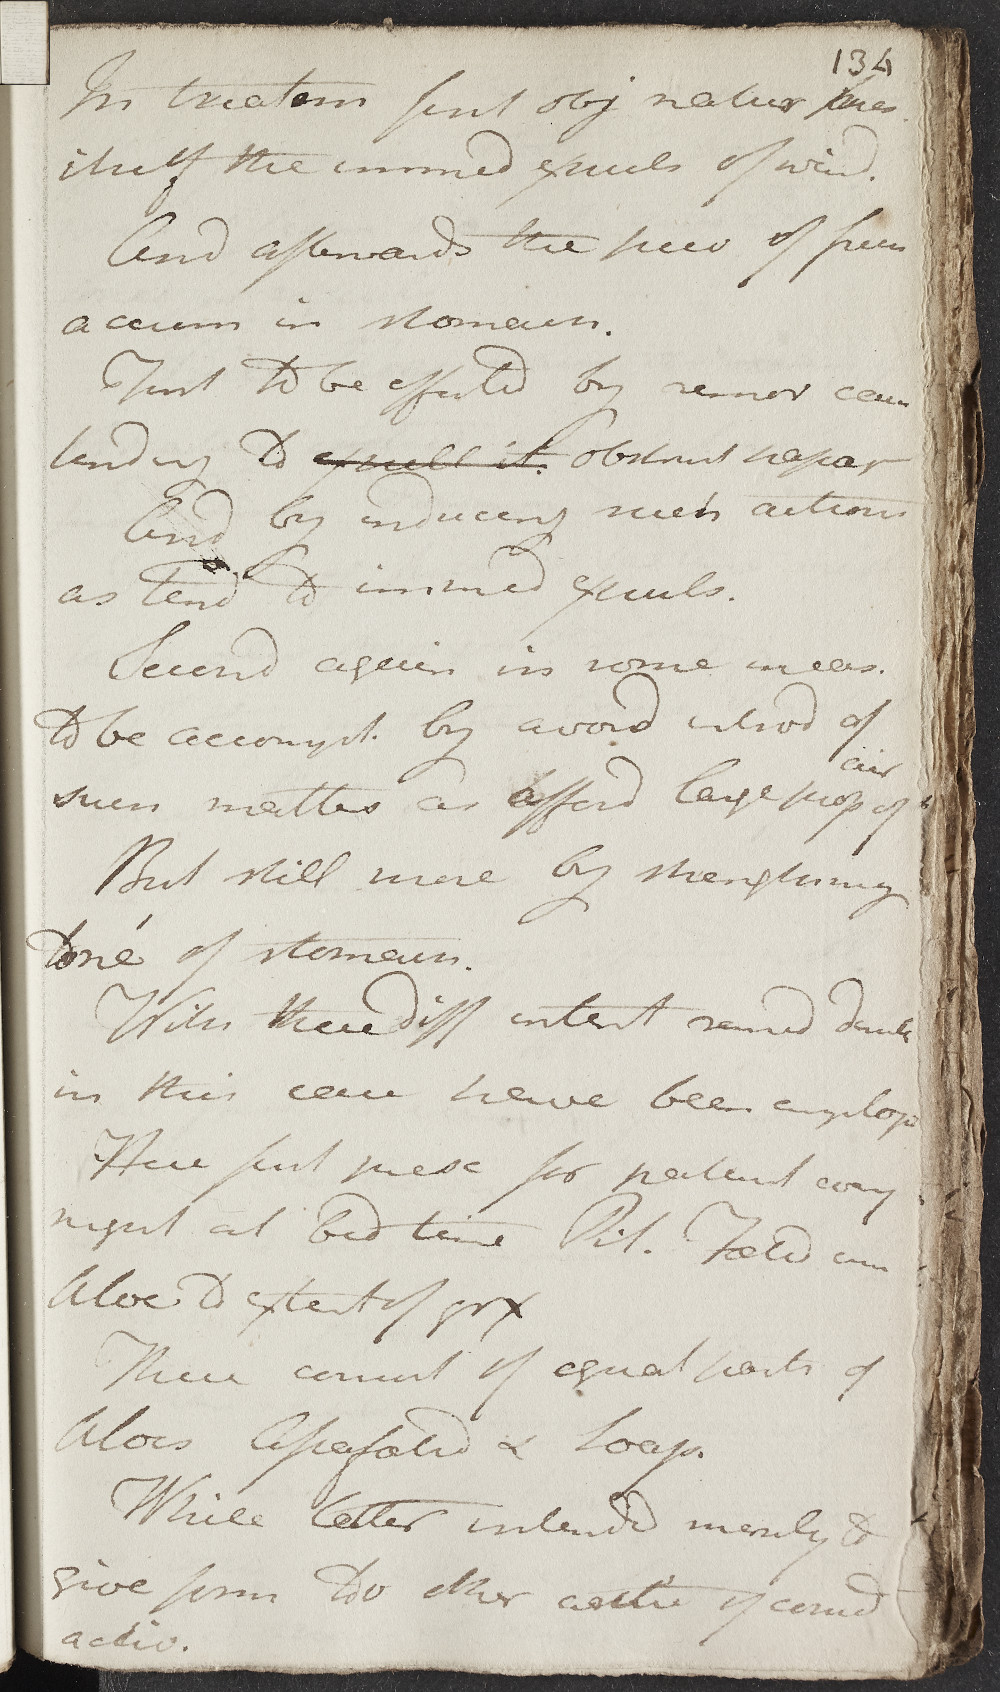 134
In treatem first obj natur pres.
itself the immed expuls of wind.
And afterwards the prev of freq
accum in stomach.
First to be effected by remov caus
tending to expell it. obstruct
And by inducing such actions
as tend to immed expuls.
Second again in some meas.
to be accompt. by avoid introd of
such matters as afford large prop of air
But still more by strengthening
tone of stomach.
With these diff intent remed
in this case have been employd
Have first presc for patient every
night at bed time Pil. Foetid cum
Aloe to extent of grx
These consist of equal parts of
Aloes Assafoetid & Soap.
While latter intended merely to
give form to other of comd
activ.